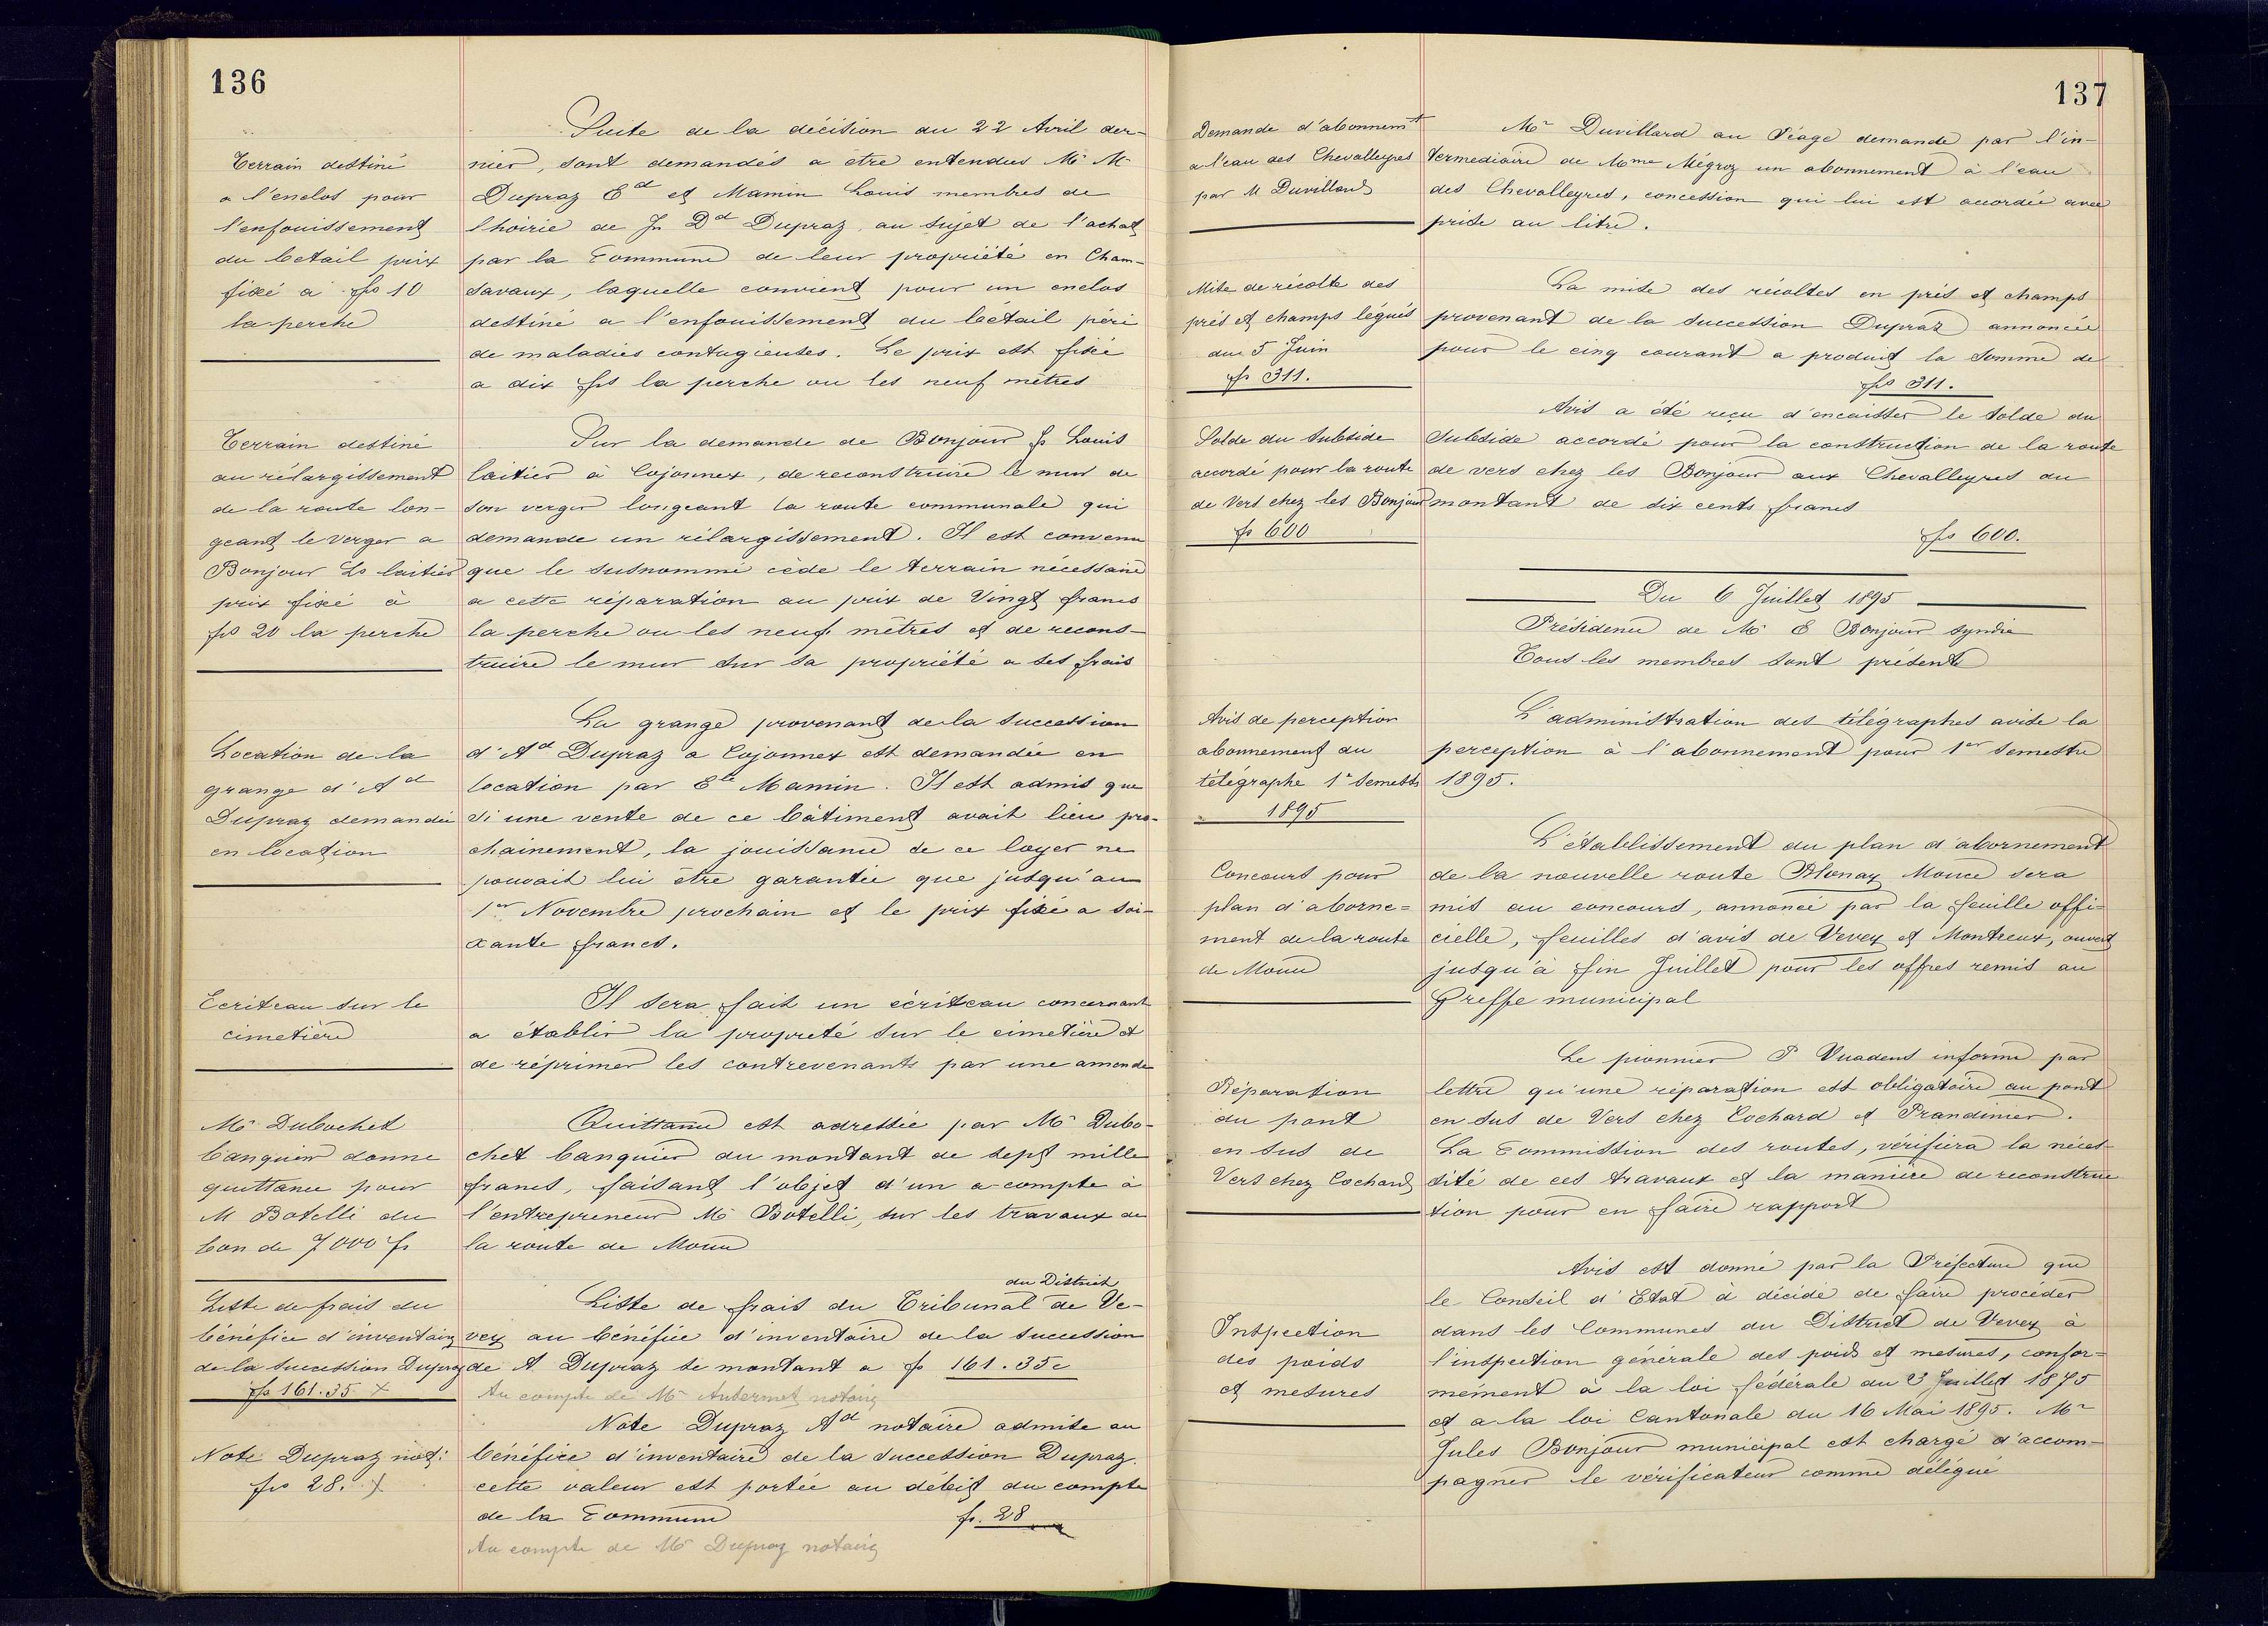 136
Terrain destiné
a l'enclos pour
l'enfouissement
du betail prix
fixé a frs 10
la perche
Suite de la décision du 22 Avril der-
nier, sont demandés a etre entendus Mr M
Dupraz Ed et Mamin Louis membres de
l'hoirie de Js Dd Dupraz au sujet de l'achat
par la Commune de leur propriété en Cham-
savaux, laquelle convient pour un enclos
destiné a l'enfouissement du bétail péri
de maladies contagieuses. Le prix est fixé
a dix frs la perche ou les neuf mètres
Terrain destiné
au rélargissement
de la route lon-
geant le verger a
Bonjour Ls laitier
prix fixé à
frs 20 la perche
Sur la demande de Bonjour fs Louis
laitier à Cojonnex, de reconstruire le mur de
son verger longeant la route communale qui
demande un rélargissement. Il est convenu
que le susnommé cède le terrain nécessaire
a cette réparation au prix de Vingt francs
la perche ou les neuf mètres et de recons-
truire le mur sur sa propriété a ses frais
Location de la
grange d'Ad
Dupraz demandée
en location
La grange provenant de la succession
d'Ad Dupraz a Cojonnex est demandée en
location par Ele Mamin. Il est admis que
si une vente de ce bâtiment avait lieu pro-
chainement, la jouissance de ce loyer ne
pouvait lui être garantie que jusqu'au
1er Novembre prochain et le prix fixé a soi-
xante francs.
Ecriteau sur le
cimetière
Il sera fait un écriteau concernant
a établir la propreté sur le cimetière et
de réprimer les contrevenants par une amende
Mr Dubochet
banquier donne
quittance pour
M Botelli du
bon de 7000 fr
Quittance est adressée par Mr Dubo-
chet banquier du montant de sept mille
francs, faisant l'objet d'un a compte à
l'entrepreneur Mr Botelli, sur les travaux de
la route de Mouce
Liste de frais du
bénéfice d'inventaire
de la succession Dupraz
frs 161.35 x
du District
Liste de frais du Tribunal de Ve-
vey au bénéfice d'inventaire de la succession
de A Dupraz se montant a fr 161.35c
Au compte de Mr notaire
Note Dupraz not:
frs 28. x
Note Dupraz Ad notaire admise au
bénéfice d'inventaire de la succession Dupraz.
cette valeur est portée au débit du compte
de la Commune fr. 28
Au compte de Mr Dupraz notaire
137
Demande d'abonnemt
a l'eau des Chevalleyres
par M Duvillard
Mr Duvillard au Péage demande par l'in-
termédiaire de Mme Mégroz un abonnement à l'eau
des Chevalleyres, concession qui lui est accordée avec
prise au litre.
Mise de récolte des
prés et champs légués
du 5 Juin
fr 311.
La mise des récoltes en prés et champs
provenant de la succession Dupraz annoncée
pour le cinq courant a produit la somme de
frs 311.
Solde du Subside
accordé pour la route
de Vers chez les Bonjour
fr 600
Avis a été reçu d'encaisser le solde du
subside accordé pour la construction de la route
de vers chez les Bonjour aux Chevalleyres du
montant de six cents francs
frs 600.
Du 6 Juillet 1895
Présidence de Mr E Bonjour syndic
Tous les membres sont présents
Avis de perception
abonnement du
télégraphe 1r Semestre
1895
L'administration des télégraphes avise la
perception à l'abonnement pour 1er Semestre
1895.
Concours pour
plan d'aborne=
ment de la route
de Mouce
L'établissement du plan d'abornement
de la nouvelle route Blonay Mouce sera
mis au concours, annoncé par la feuille offi=
cielle, feuilles d'avis de Vevey et Montreux, ouvert
jusqu'à fin Juillet pour les offres remis au
Greffe municipal
Réparation
du pont
en sus de
Vers chez Cochard
Le pionnier P Vuadens informe par
lettre qu'une réparation est obligatoire au pont
en sus de Vers chez Cochard et Prandimer.
La Commission des routes, vérifiera la néces-
sité de ces travaux et la manière de reconstruc
tion pour en faire rapport
Inspection
des poids
et mesures
Avis est donné par la Préfecture que
le Conseil d'Etat à décidé de faire procéder
dans les Communes du District de Vevey à
l'inspection générale des poids et mesures, confor=
mément à la loi fédérale du 3 Juillet 1875
et a la loi Cantonale du 16 Mai 1895. Mr
Jules Bonjour municipal est chargé d'accom-
pagner le vérificateur comme délégué